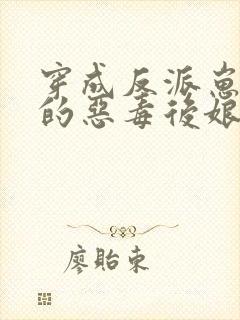 穿成反派崽
的惡毒後娘
廖貽東